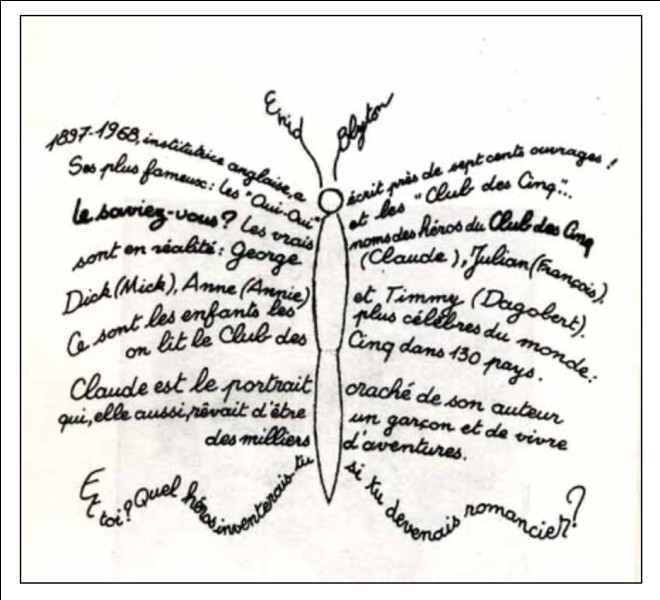 Enid Blyton
1897-1968, institutrice anglaise, a écrit près de sept cents ouvrages !
Ses plus fameux : les "Oui-Oui" et les "Club des Cinq"...
le saviez-vous ? Les vrais noms des héros du Club des Cinq
sont en réalité : George (Claude), Julian (François),
Dick (Mick), Anne (Annie) et Timmy (Dagobert).
Ce sont les enfants les plus célèbres du monde :
on lit le Club des Cinq dans 130 pays.
Claude est le portrait craché de son auteur
qui, elle aussi, rêvait d'être un garçon et de vivre
des milliers d'aventures.
Et toi ? Quel héros inventerais-tu si tu devenais romancier ?